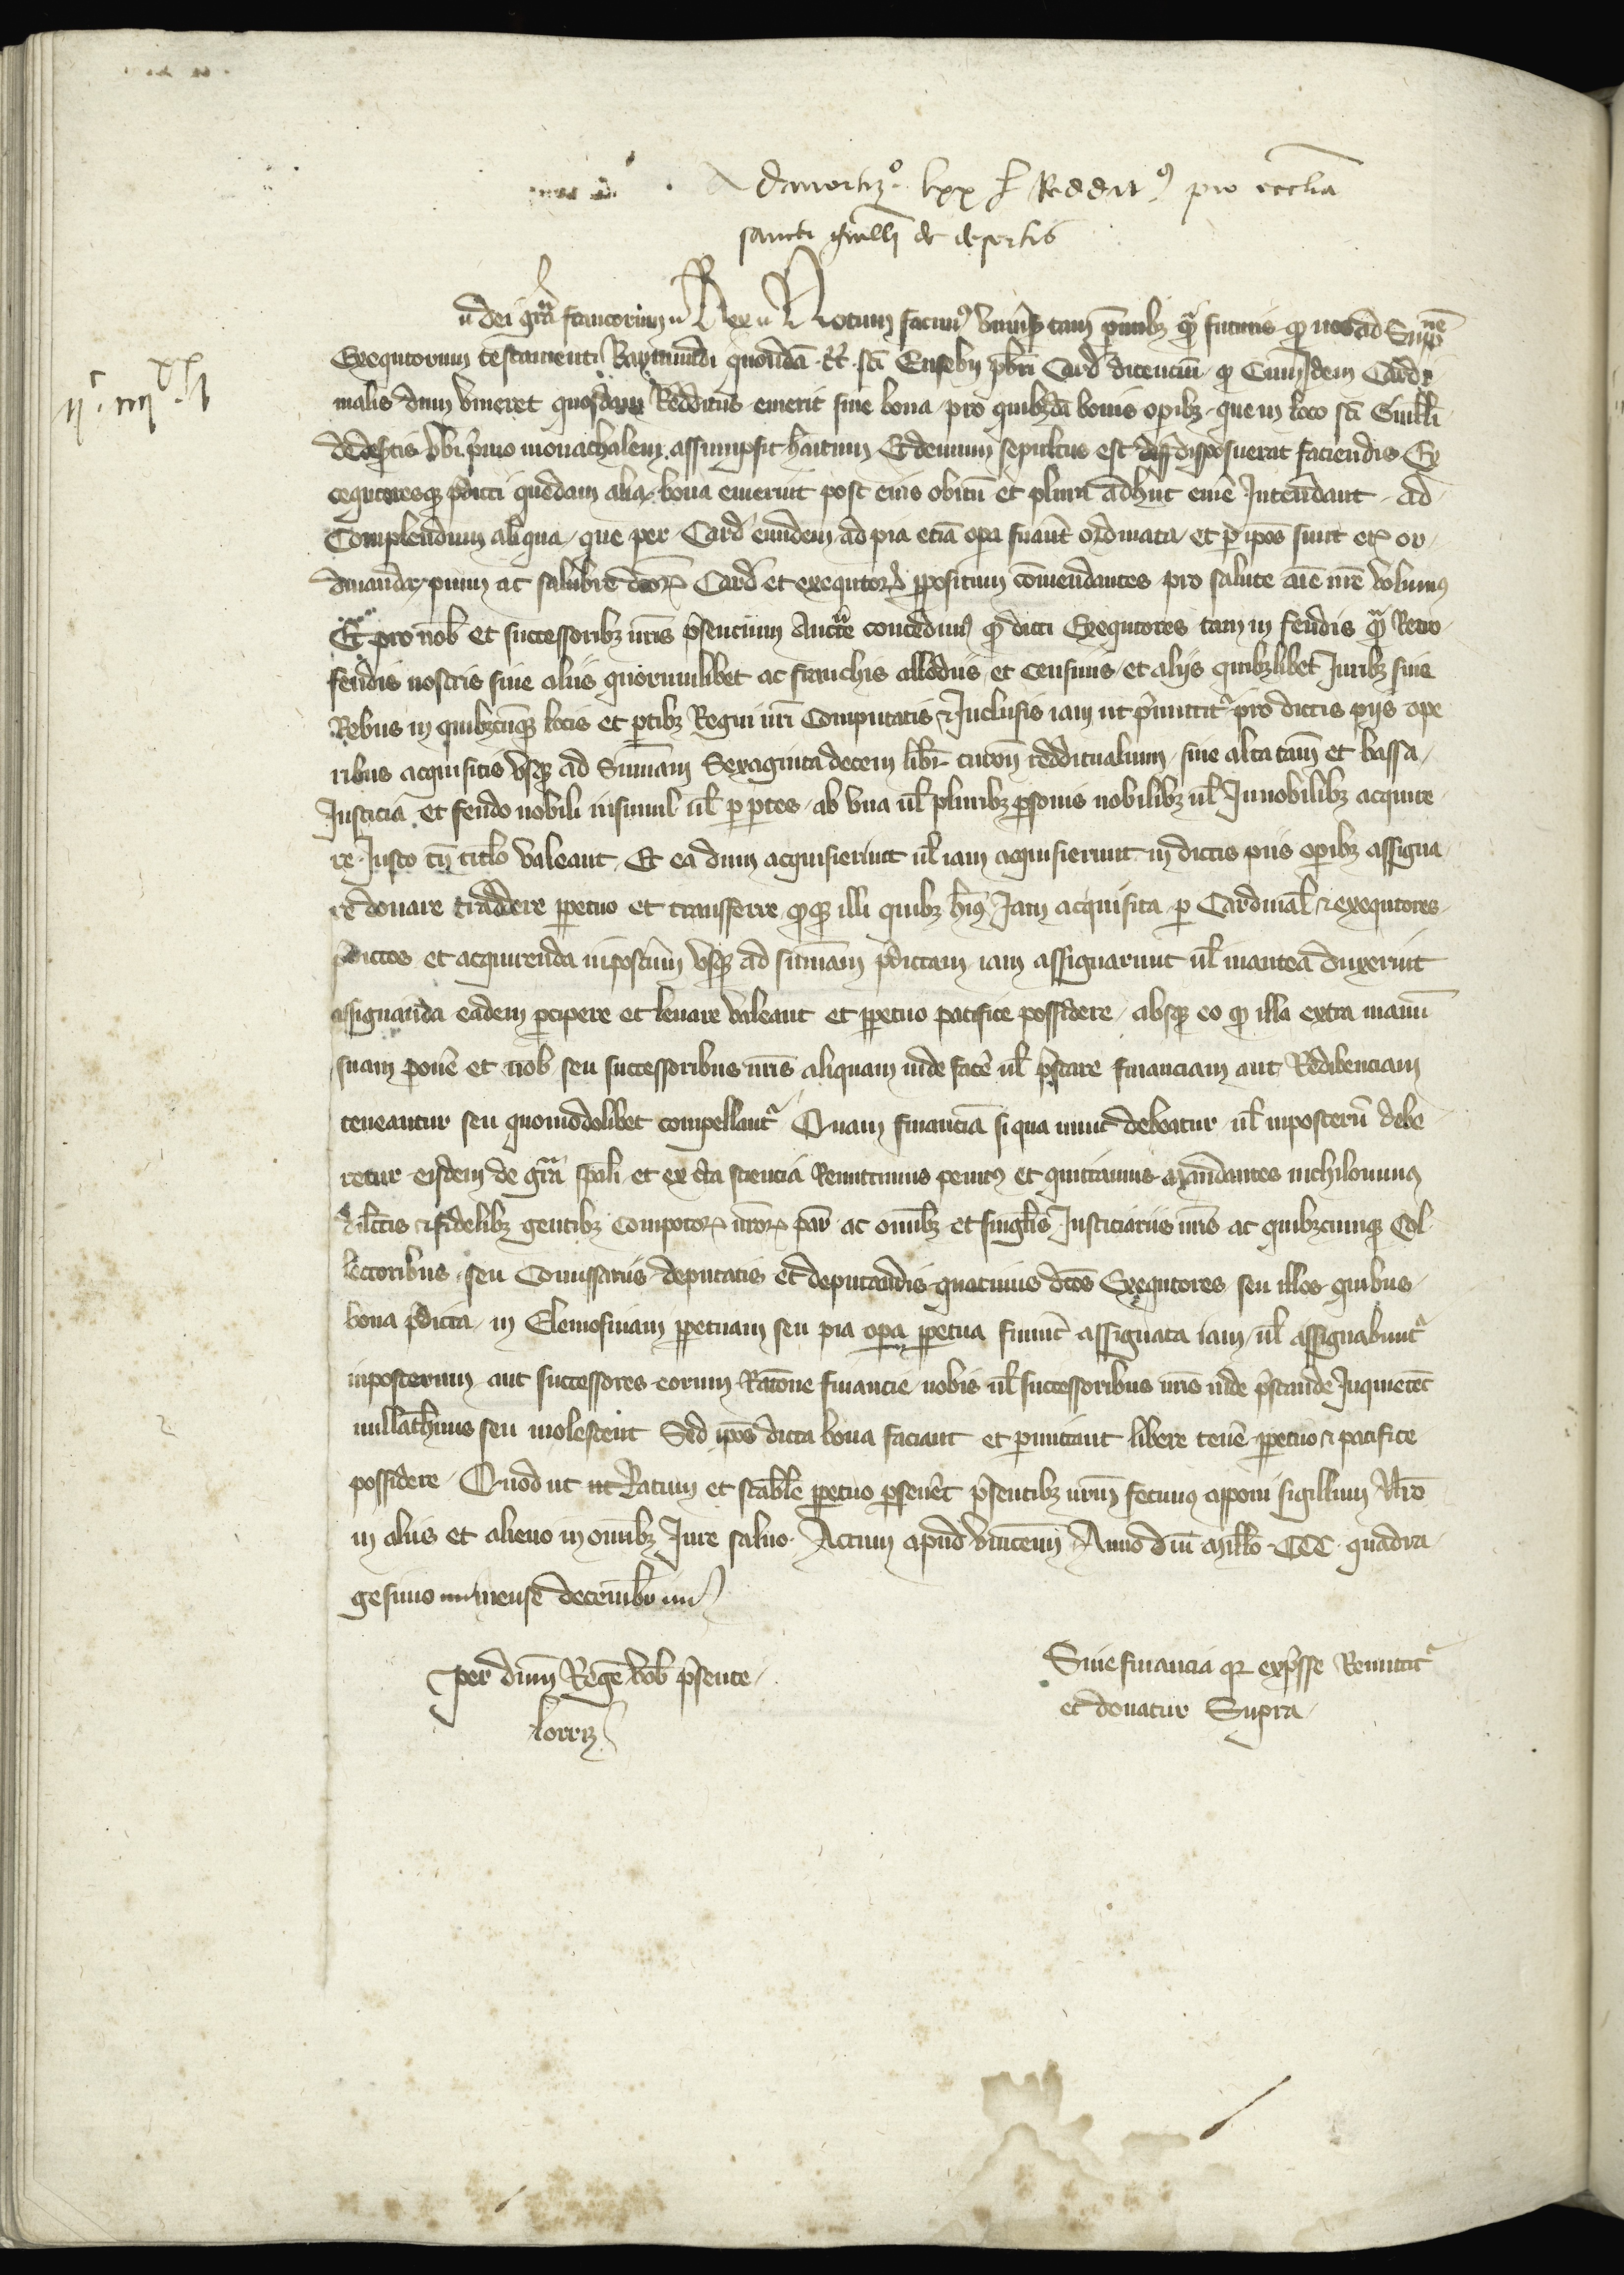 Admortizo. lxx l Reddit9 pro ecclia
sancti Guilli de desertis
dei gra francorum Rex Notum facim9 Universis tam pñtibz qua futuris qp nos ad Supp nẽ
Exequtorum testamenti Raymundi quondã tt sci Eusebij pbri Card dicenciũ qp Cum idem Cardi
nalis dum viveret quosdam Redditus emerit sive bona pro quibzdã bonis opibz que in loco sci Guilli
de desertis ubi primo monachalem assumpsit hãitum Et demum sepultus est disposuerat faciendis Ex
cequtoresqz pdicti quedam alia bona emerint post eius obitũ et plura adhuc emẽ Intendant ad
Complendum aliqua que per Card eundem ad pia etiã opa fuãt ordinata et p ipos sunt etz or
dinanda pium ac salubre dcorz Card et exequtorz ppositum comendantes pro salute aiẽ nrẽ Volum9
Et pro nob et successoribz nris psencium Auctte concedim9 qp dicti Exequtores tam in feudis qua Retro
feudis nostris sive aliis quorumlibet ac franchis allodiis et Censivis et aliis quibzlibet Juribz sive
Rebus in quibzcuqz locis et ptibz Regni nri Computatis & Inclusis iam ut pmittit pro dictis piis ope
ribus acquisitis usqz ad Summam Sexaginta decem libr turoñ reddituallium sine alta tam et bassa
Justicia et feudo nobili insimul ul p ptes ab una ul pluribz psonis nobilibz ul Innobilibz acquire
re Justo tñ titlo valeant Et ea dum acquisierint ul iam acquisierunt in dictis piis opibz assigna
re donare traddere ppetuo et transferre qpqz illi quibz hui9 Jam acquisita p Cardinal & exequtores
pdictos et acquirenda inpostũm usqz ad summam pdictam iam assignarunt ul inantea duxerint
assignanda eadem pcipere et levare valeant et ppetuo pacifice possidere absqz eo qp illa extra manũ
suam ponẽ et nob seu successoribus nris aliquam inde facẽ ul pstare financiam aut Redibenciam
teneantur seu quomodolibet compellant Quam financiã si qua nunc debeatur ul inposterũ debe
retur eisdem de gra spali et ex cta sciencia Remittimus penit9 et quittamus Mandantes nichilomin9
dilctis & fidelibz gentibz Compotorz nrorz par ac omibz et singlis Justiciariis nris ac quibzcumqz Col
lectoribus seu Comissariis deputatis et deputandis quatinus dcos Exequtores seu illos quibus
bona pdicta in Elemosinam ppetuam seu pia opa ppetua fuuit assignata iam ul assignabunt
inposterum aut successores eorum Ratone financie nobis ul successoribus nris inde pstande Inquietet
nullathenus seu molestent Sed ipos dicta bona faciant et pmittant libere tenẽ ppetuo & pacifice
possidere Quod ut ut Ratum et stable ppetuo pseveret psentibz nrm fecim9 apponi sigillum Nro
in aliis et alieno in omibz Jure salvo Actum apud Vincenn Anno dni millo CCC quadra
gesimo mense decembr
per dnm Regẽ vob psente
lorriz
Sine financia qz expsse Remittit
et donatur Supra